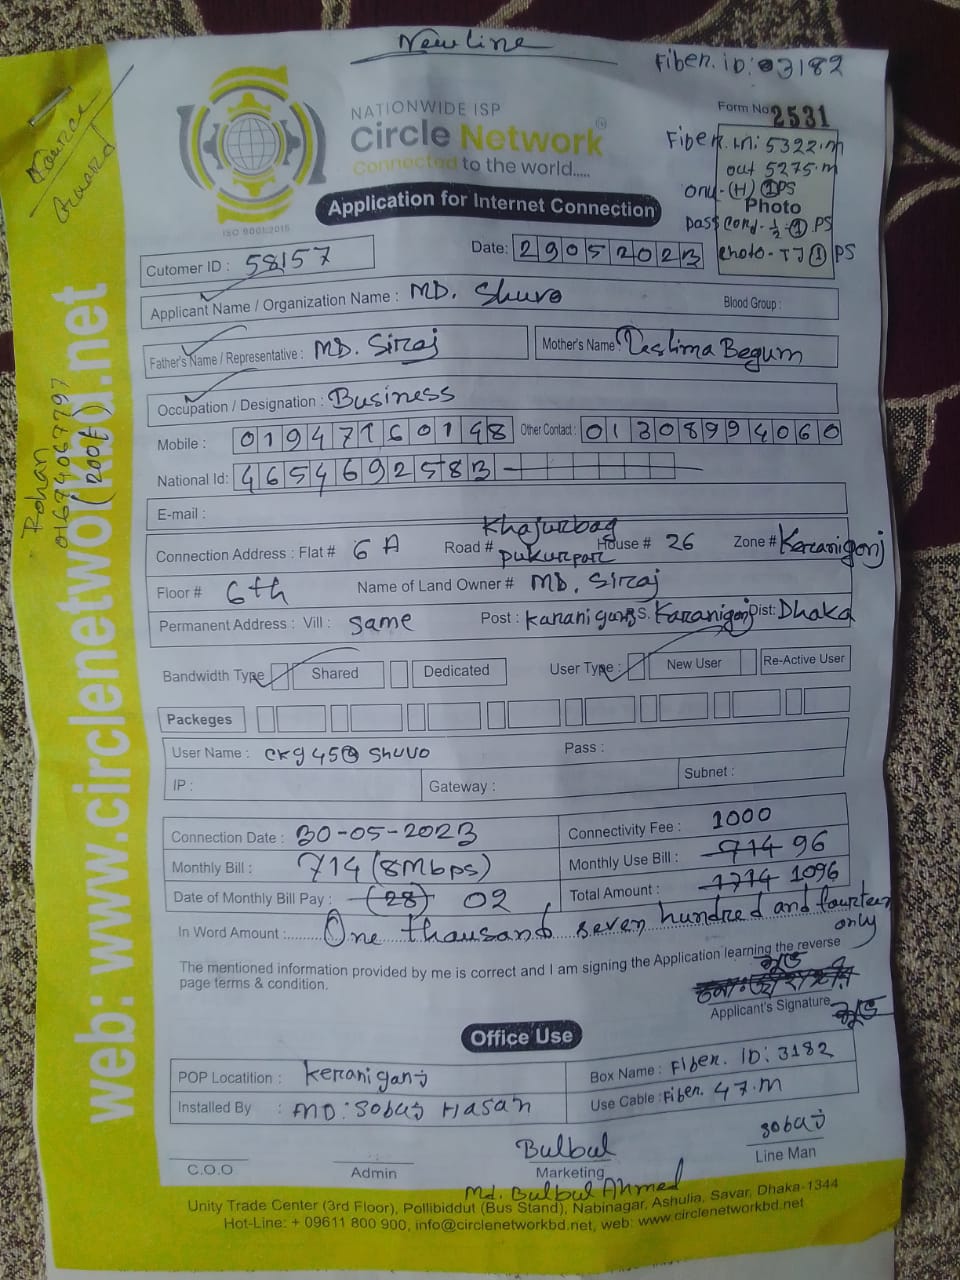 New Line
Fiber. iD: 03182
NATIONWIDE ISP
Circle Network
Connected to the world.....
ISO 9001:2015
Form No 2531
Fiber. in: 5322.m
out 5275.m
onu-(H) ① PS
Photo
Application for Internet Connection
Cutomer ID : 58157
Date: 29052023
Applicant Name / Organization Name : MD. Shuvo
Blood Group :
Father's Name / Representative : MD. Siraj
Mother's Name : Taslima Begum
Occupation / Designation : Business
Mobile : 01947160148 Other Contact : 01308994060
National Id: 4654692583
E-mail :
Connection Address : Flat # 6 A Road # Khajurbag pukurpar House # 26 Zone # Keranigonj
Floor # 6th Name of Land Owner # MD. Siraj
Permanent Address : Vill : same Post : karanigung P.S. Karanigonj Dist: Dhaka
Bandwidth Type Shared Dedicated User Type : New User Re-Active User
Packeges
User Name : ckg45@shuvo Pass :
IP : Gateway : Subnet :
Connection Date : 30-05-2023 Connectivity Fee : 1000
Monthly Bill : 714 (8Mbps) Monthly Use Bill : 714 96
Date of Monthly Bill Pay : (28) 02 Total Amount : 1714 1096
In Word Amount :....... One thousand seven hundred and fourteen only
The mentioned information provided by me is correct and I am signing the Application learning the reverse
page terms & condition.
Applicant's Signature
Office Use
POP Locatition : keraniganj Box Name : Fiber. iD: 3182
Installed By : MD: Sobaj Hasan Use Cable : Fiber. 47.M
Bulbul
Sobaj
C.O.O Admin Marketing Line Man
Md. Bulbul Ahmed
Unity Trade Center (3rd Floor), Pollibiddut (Bus Stand), Nabinagar, Ashulia, Savar, Dhaka-1344
Hot-Line: + 09611 800 900, info@circlenetworkbd.net, web: www.circlenetworkbd.net
web: www.circlenetworkbd.net
Rohan
(200t)